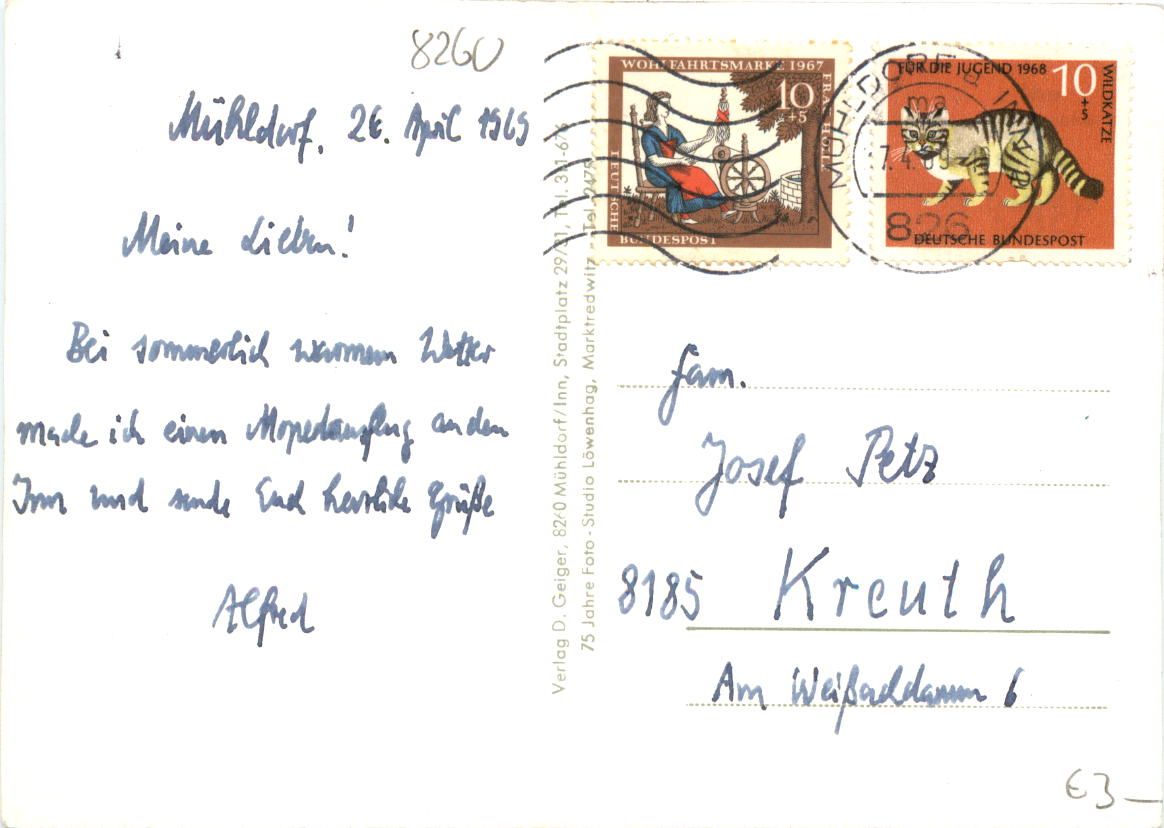 8260
Mühldorf, 26. April 1969
Meine Lieben!
Bei sommerlich warmem Wetter
mache ich einen Mopedausflug an den
Inn und sende Euch herzliche Grüße
Alfred
Verlag D. Geiger, 8260 Mühldorf/Inn, Stadtplatz 29/31, Tel.
75 Jahre Foto - Studio Löwenhag, Marktredwitz - Tel.
WOHLFAHRTSMARKE 1967
FRAU HOLLE
10
+5
DEUTSCHE
BUNDESPOST
FÜR DIE JUGEND 1968
10
+5
WILDKATZE
DEUTSCHE BUNDESPOST
MÜHLDORF a. INN
826
Fam.
Josef Petz
8185 Kreuth
Am Weißachdamm 6
€3,-